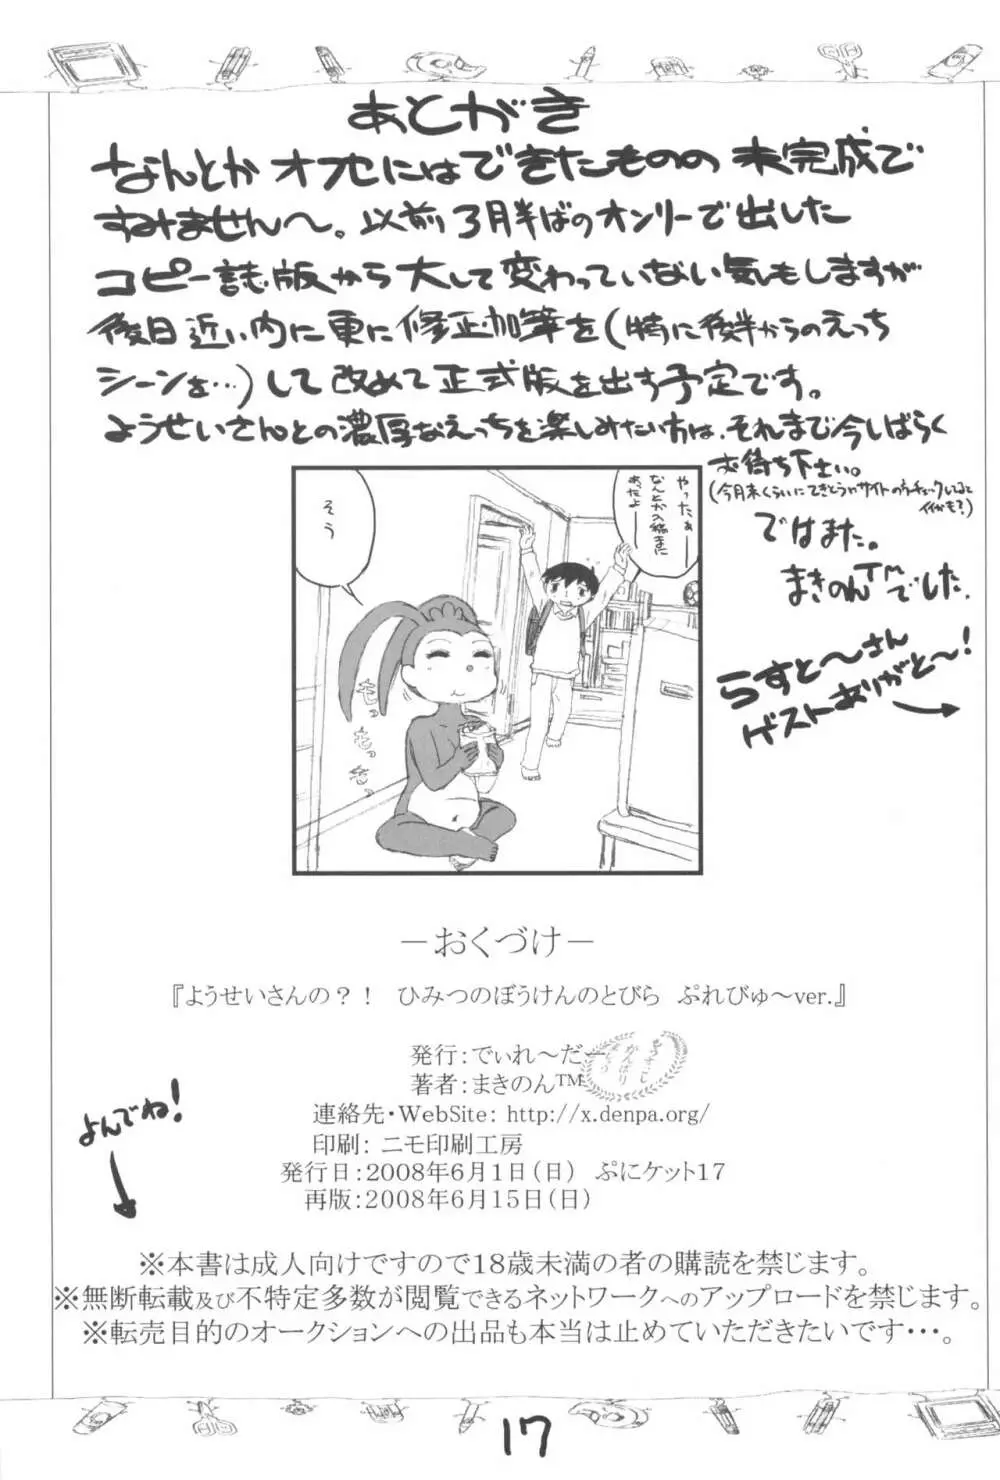 あとがき
なんとかオフセにはできたものの 未完成で
すみません〜。以前3月半ばのオンリーで出した
コピー誌版から大して変わっていない気もしますが
後日近い内に更に修正・加筆を(特に後半からのえっち
シーンを…)して改めて正式版を出す予定です。
ようせいさんとの濃厚なえっちを楽しみたい方は、それまで今しばらく
お待ち下さい。
(今月末くらいにてきとうにサイトの方チェックしてると
イイかも?)
ではまた。
まきのんTMでした。
らすと〜さん
ゲストありがと〜!
やったぁー
なんとか入稿まに
あったよー
そう
もっ
もっ
もっ
－おくづけ－
『ようせいさんの？！　ひみつのぼうけんのとびら　ぷれびゅ〜ver.』
発行：でぃれ〜だー
著者：まきのん™
連絡先・WebSite： http://x.denpa.org/
印刷： ニモ印刷工房
発行日：2008年6月1日（日）　ぷにケット17
再版：2008年6月15日（日）
よんでね!
※本書は成人向けですので18歳未満の者の購読を禁じます。
※無断転載及び不特定多数が閲覧できるネットワークへのアップロードを禁じます。
※転売目的のオークションへの出品も本当は止めていただきたいです･･･。
17